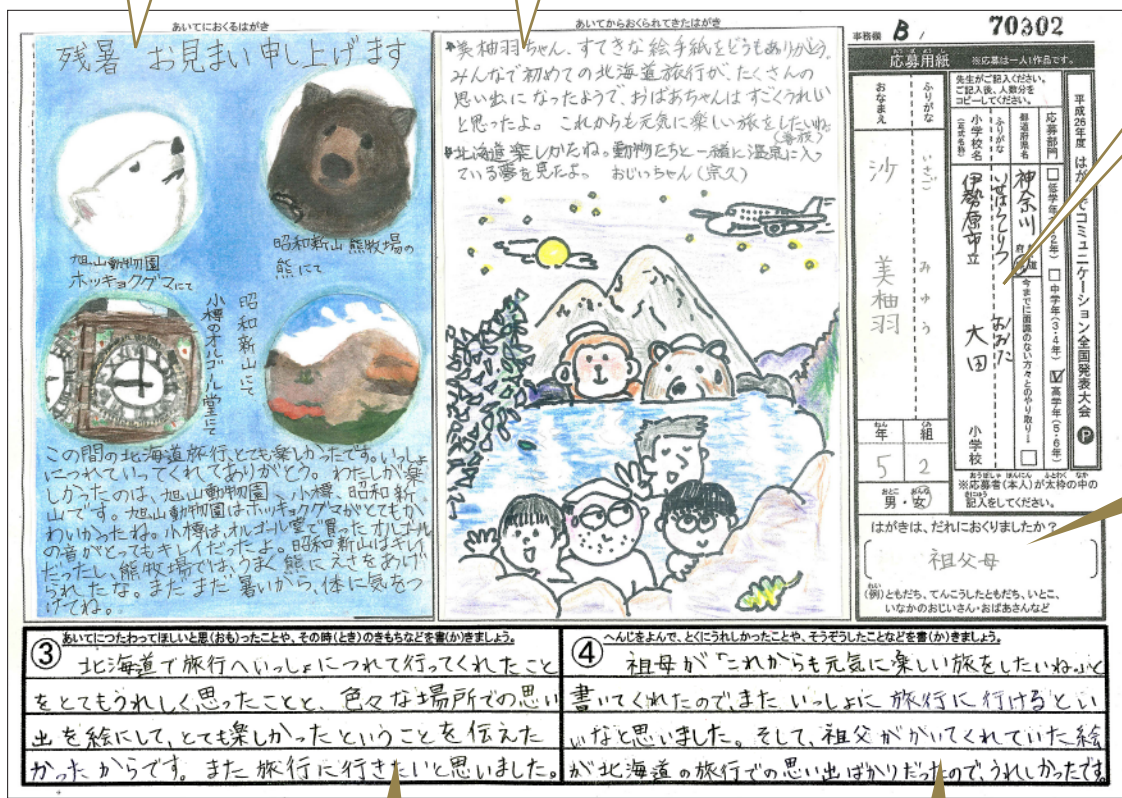 あいてにおくるはがき
残暑 お見まい申し上げます
旭山動物園
ホッキョクグマにて
昭和新山 熊牧場の
熊にて
小樽のオルゴール堂にて
昭和新山にて
この間の北海道旅行、とても楽しかったです。いっしょ
につれていってくれてありがとう。わたしが楽
しかったのは、旭山動物園、小樽、昭和新
山です。旭山動物園はホッキョクグマがとてもか
わいかったね。小樽は、オルゴール堂で買ったオルゴール
の音がとってもキレイだったよ。昭和新山はキレイ
だったし、熊牧場では、うまく熊にえさをあげ
られたな。まだまだ暑いから、体に気をつ
けてね。
あいてからおくられてきたはがき
美柚羽ちゃん、すてきな絵手紙をどうもありがとう。
みんなで初めての北海道旅行が、たくさんの
思い出になったようで、おばあちゃんはすごくうれしい
と思ったよ。これからも元気に楽しい旅をしたいね。
北海道楽しかたね。動物たちと一緒に温泉に入っ
ている夢を見たよっ おじいちゃん(宗久)
事務欄 B 70302
応募用紙 ※応募は一人1作品です。
おうぼようし
平成26年度 はがきでコミュニケーション全国発表大会 P
先生がご記入ください。
ご記入後、人数分を
コピーしてください。
応募部門 低学年 2年) 中学年(3・4年) 高学年(5・6年)
都道府県名 神奈川 府
今までに面識のない方々とのやり取り→
ふりがな いせはらしりつ おおた
小学校名 (正式名称) 伊勢原市立 大田 小学校
ふりがな いさご みゆう
おなまえ 沙 美柚羽
ねん くみ
年 組
5 2
おとこ おんな
男・女
おうぼしゃ ほんにん ふとわく なか
※応募者(本人)が太枠の中の
きにゅう
記入をしてください。
はがきは、だれにおくりましたか?
祖父母
れい
(例)ともだち、てんこうしたともだち、いとこ、
いなかのおじいさん・おばあさんなど
③ あいてにつたわってほしいと思(おも)ったことや、その時(とき)のきもちなどを書(か)きましょう。
北海道で旅行へいっしょにつれて行ってくれたこと
をとてもうれしく思ったことと、色々な場所での思い
出を絵にして、とても楽しかったということを伝えた
かったからです。また旅行に行きたいと思いました。
④ へんじをよんで、とくにうれしかったことや、そうぞうしたことなどを書(か)きましょう。
祖母が「これからも元気に楽しい旅をしたいね。」と
書いてくれたので、またいっしょに旅行に行けるとい
いなと思いました。そして、祖父がかいてくれていた絵
が北海道の旅行での思い出ばかりだったので、うれしかったです。